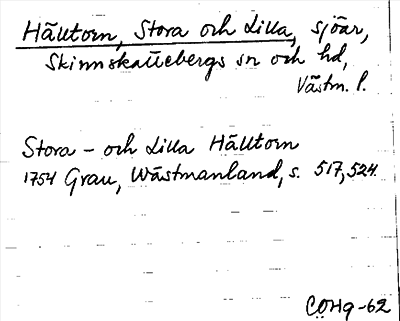 Hälltorn, Stora och Lilla, sjöar,
Skinnskattebergs sn och hd,
Västm. l.
Stora - och Lilla Hälltorn
1754 Grau, Wästmanland, s. 517, 524.
COHg-62